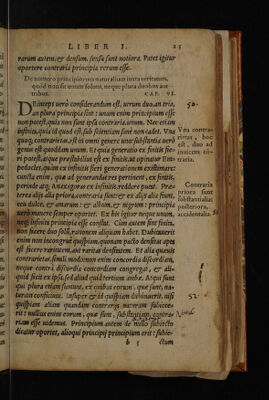 LIBER I. 25
rarum autem, & densum, sensu sunt notiora. Patet igitur
oportere contraria principia rerum esse.
De numero principiorum naturalium iuxta veritatem,
quod non sit unum solum, neque plura duobus aut
tribus. CAP. VI.
DEinceps verò considerandum est, utrum duo, an tria,
an plura principia sint: unum enim principium esse
non potest, quia non sunt ipsa contraria unum. Nec etiam
infinita, quia id quod est sub scientiam sanè non cadet. Vna
quoq; contrarietas, est in omni genere uno: substantia verò
genus est quoddam unum. Et quia generatio ex finitis fie-
ri potest, atq; præstabilius est ex finitis, ut opinatur Em-
pedocles, quàm ex infinitis fieri generationem existimare:
cuncta enim, quæ ad generandas res pertinent, ex finitis,
perinde atq; Anaxagoras ex infinitis, reddere putat. Præ-
terea alia alijs priora, contraria sunt: & ex alijs alia fiunt,
ceu dulce, & amarum: & album, & nigrum: principia
verò manere semper oportet. Ex his igitur neque unum,
neq; infinita principia esse constat. Cùm autem sint finita,
non facere duo solùm, rationem aliquam habet. Dubitauerit
enim non incongruè quispiam, quonam pacto densitas apta
est facere raritatem, aut raritas densitatem. Et alia quæuis
contrarietas, simili modo: non enim concordia discordiam,
neque contra discordia concordiam congregat, & ali-
quid facit ex ipsa, sed aliud quid tertium ambæ. Atqui sunt
qui plura etiam sumunt, ex quibus eorum quæ sunt, na-
turam conficiunt. Insuper & id quispiam dubitauerit, nisi
quispiam aliam quandam contrarijs naturam subiece-
rit: nullius enim eorum, quæ sunt, substantiam, contra-
riam esse uidemus. Principium autem de nullo subiecto
dicatur oportet, alioqui principij principium erit: subie-
b 5 ctum
50.
Vna contra-
rietas, hoc
est, duo ad
inuicem cō-
traria.
Contraria
priora sunt
substantialia:
posteriora,
accidentalia.
51
52.